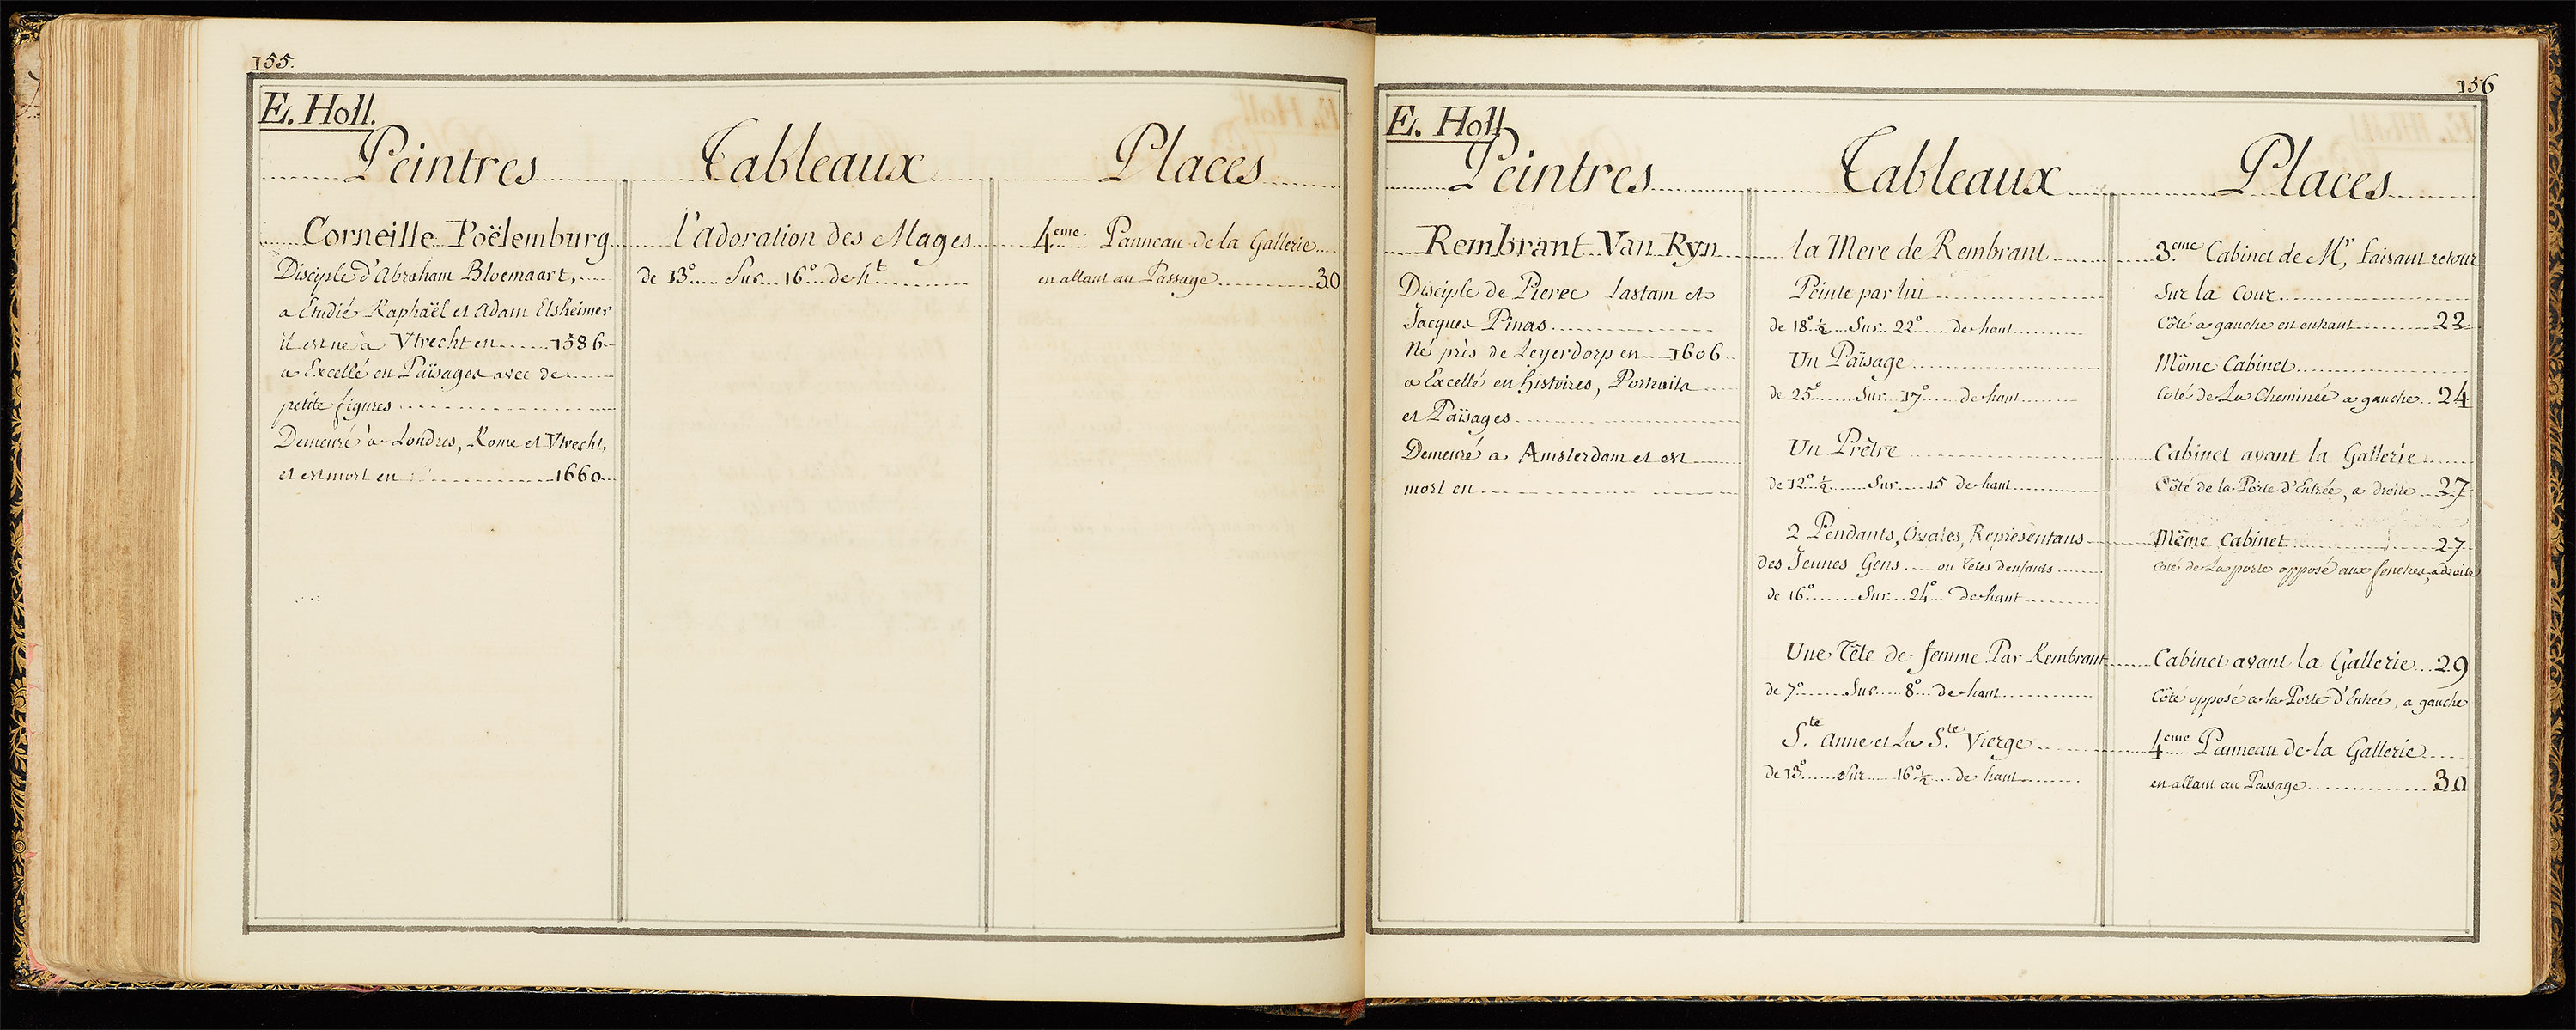 155.
E. Holl.
Peintres
Tableaux
Places
Corneille Poëlemburg
Disciple d'Abraham Bloemaart,
a Etudié Raphaël et Adam Elsheimer
il est né à Vtrecht en 1586
a Excellé en Païsages avec de
petite figures
Demeuré à Londres, Rome et Vtrecht,
et est mort en 1660
l'adoration des Mages
de 13º Sur 16º de ht
4eme Panneau de la Gallerie
en allant au Passage 30
156
E. Holl
Peintres
Tableaux
Places
Rembrant Van Ryn
Disciple de Pierre Lastam et
Jacques Pinas
Né près de Leyerdorp en 1606
a Excellé en histoires, Portraits
et Païsages
Demeuré a Amsterdam et est
mort en
la Mere de Rembrant
Peinte par lui
de 18º ½ Sur 22º de haut
3.eme Cabinet de Mr, faisant retour
Sur la Cour
Côté a gauche en entrant 22
Un Païsage
de 25º Sur 17 de haut
Même Cabinet
Coté de La Cheminée a gauche 24
Un Prêtre
de 12º ½ Sur 15 de haut
Cabinet avant la Gallerie
Côté de la Porte d'Entrée, a droite 27
2 Pendants, Ovales, Représentans
des Jeunes Gens ou Têtes denfants
de 16º Sur 24º de haut
Même Cabinet 27
coté de La porte opposé aux fenetres, a droite
Une Tête de femme Par Rembrant
de 7º Sur 8º de haut
Cabinet avant la Gallerie 29
Côté opposé a la Porte d'Entrée, a gauche
S.te Anne et La S.te Vierge
de 13º Sur 16º ½ de haut
4eme Panneau de la Gallerie
en allant au Passage 30